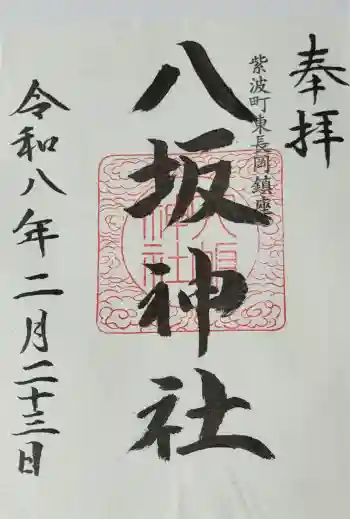 奉拝
紫波町東長岡鎮座
八坂神社
八坂神社
令和八年二月二十三日